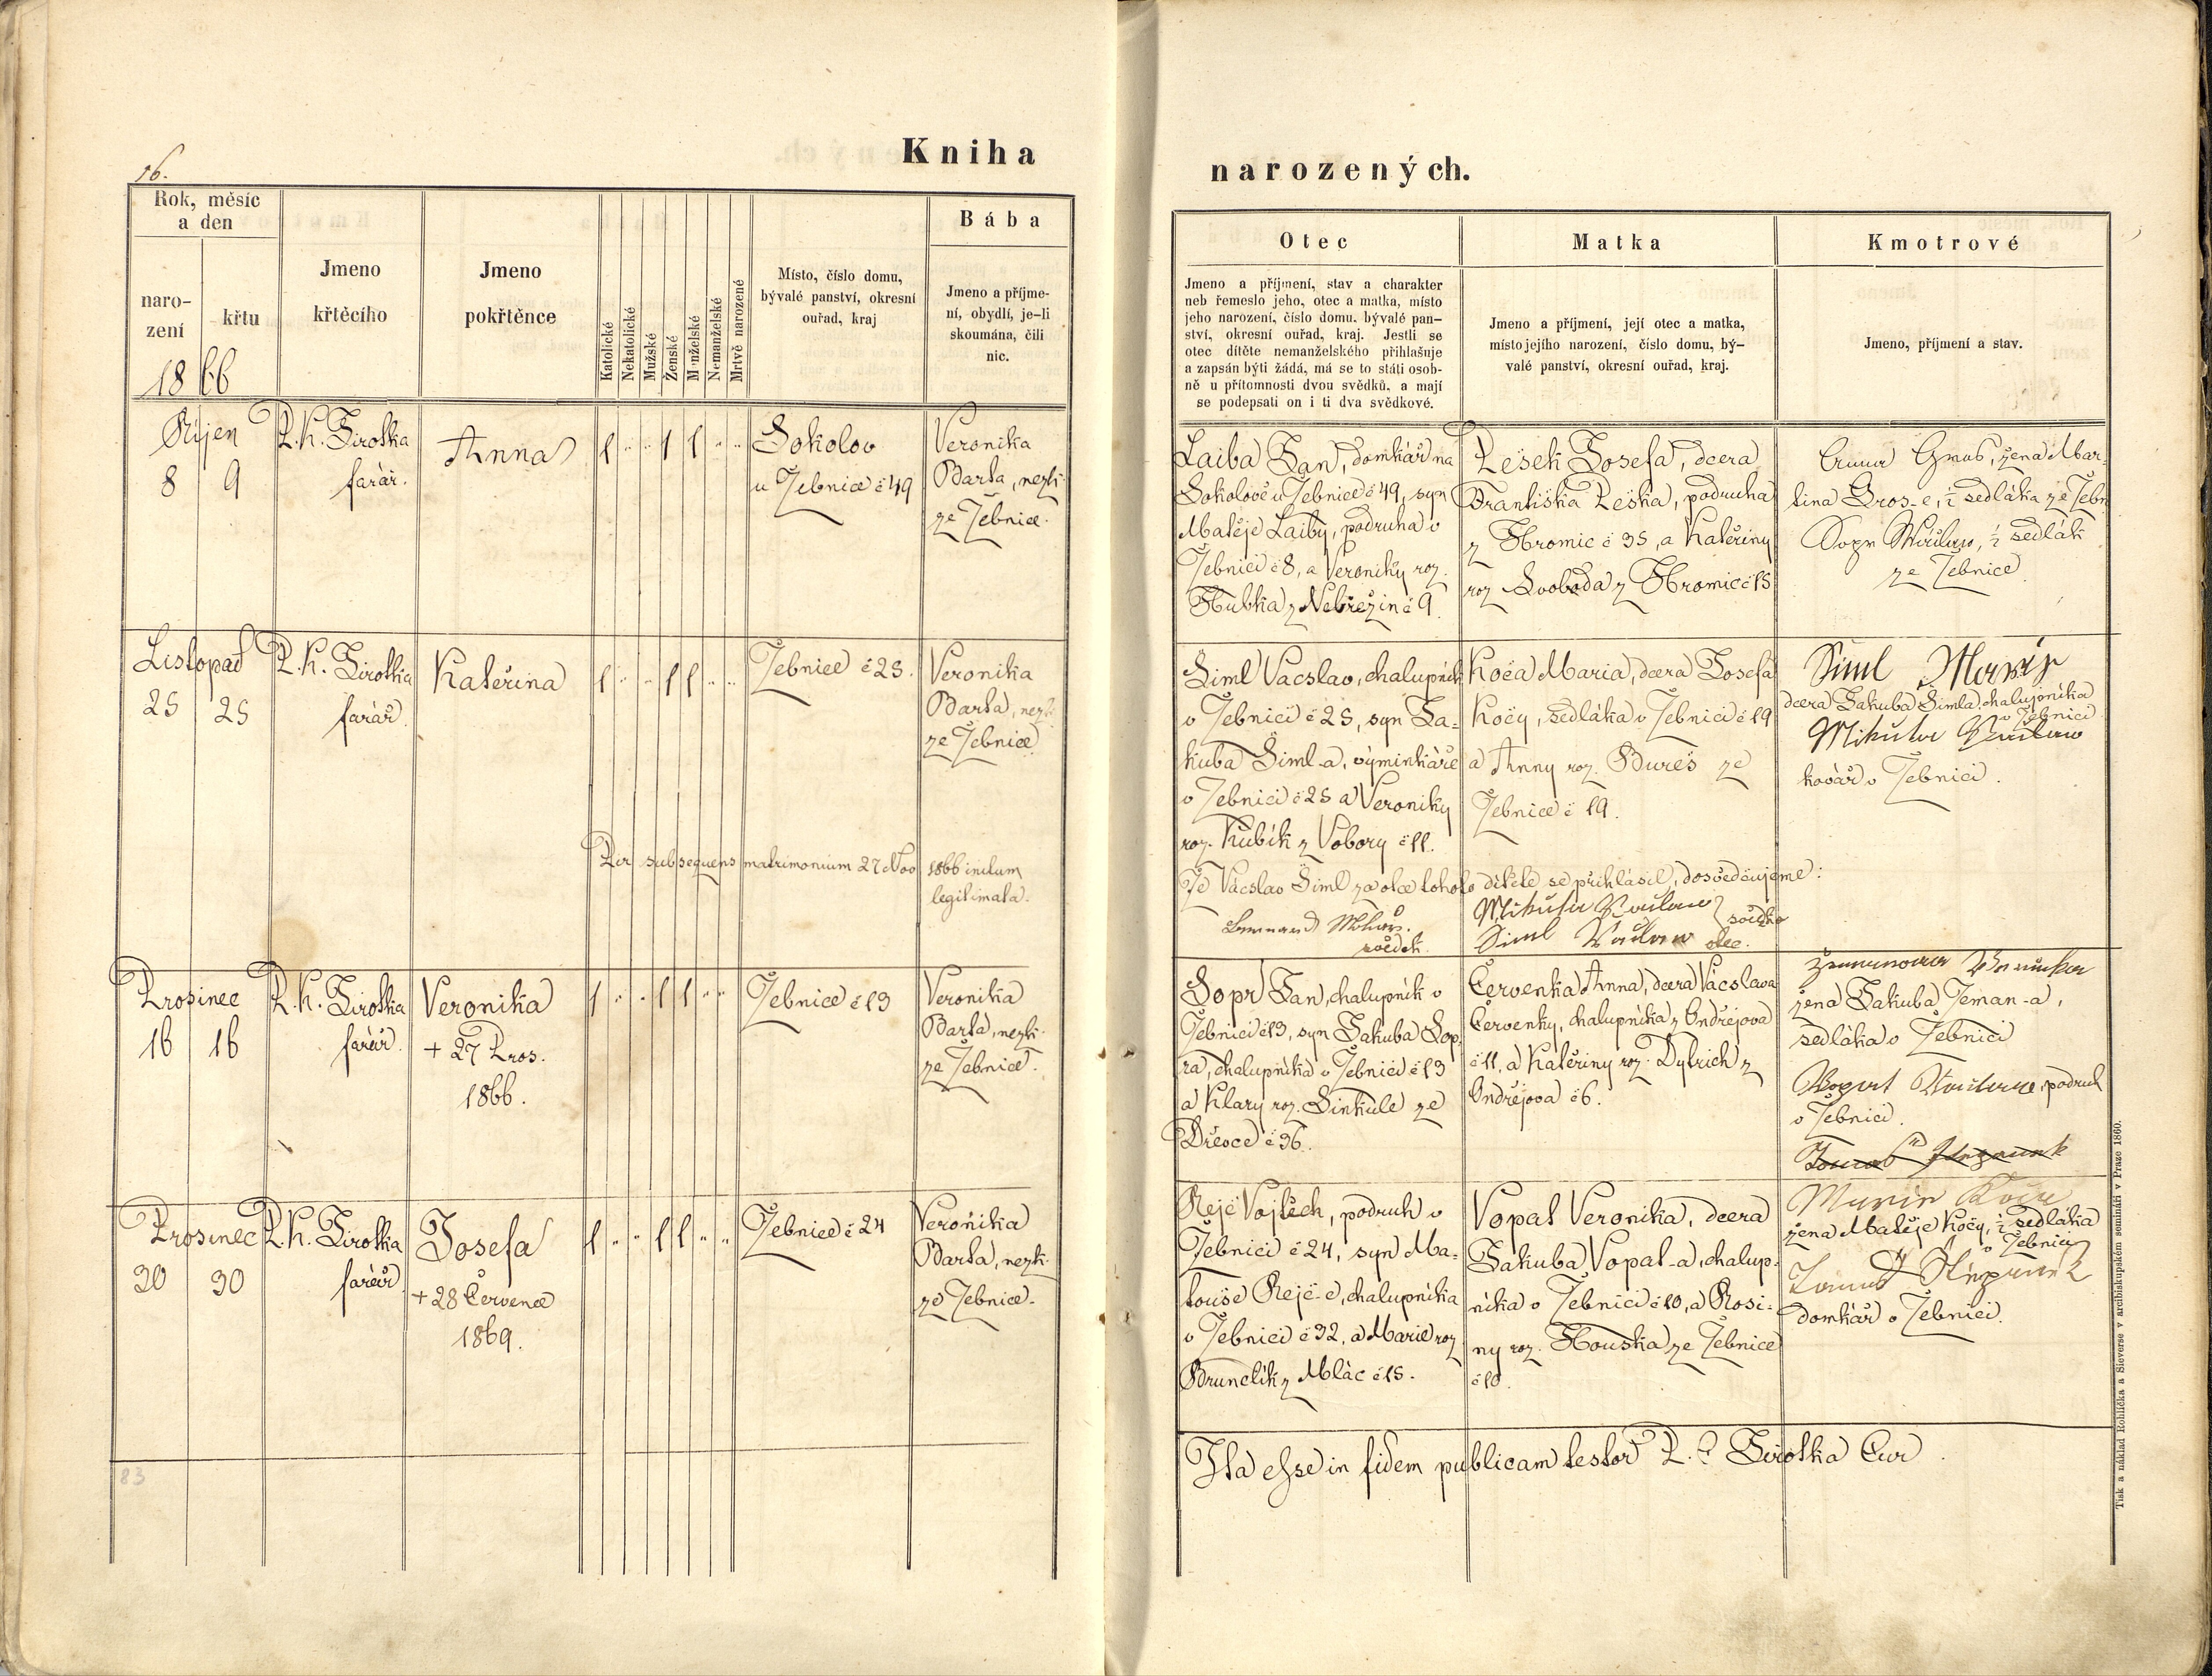 16.
Kniha
narozených.
Rok, měsíc
a den
naro-
zení
křtu
1866
Jmeno
křtěcího
Jmeno
pokřtěnce
Katolické
Nekatolické
Mužské
Ženské
Manželské
Nemanželské
Mrtvě narozené
Místo, číslo domu,
bývalé panství, okresní
ouřad, kraj
Bába
Jmeno a příjme-
ní, obydlí, je-li
skoumána, čili
nic.
Otec
Jmeno a příjmení, stav a charakter
neb řemeslo jeho, otec a matka, místo
jeho narození, číslo domu. bývalé pan-
ství, okresní ouřad, kraj. Jestli se
otec dítěte nemanželského přihlašuje
a zapsán býti žádá, má se to státi osob-
ně u přítomnosti dvou svědků, a mají
se podepsati on i ti dva svědkové.
Matka
Jmeno a příjmení, její otec a matka,
místo jejího narození, číslo domu, bý-
valé panství, okresní ouřad, kraj.
Kmotrové
Jmeno, příjmení a stav.
Říjen
8 9
P. K. Sirotka
farář.
Anna
1 " " 1 1 " "
Sokolov
u Žebnice č 49
Veronika
Barta, nezk.
ze Žebnice.
Laiba Jan, domkář na
Sokolově u Žebnice č 49, syn
Matěje Laiby, podruha v
Žebnici č 8, a Veroniky roz.
Hubka z Nebřezin č 9.
Pešek Josefa, dcera
Františka Peška, podruha
z Hromic č 35, a Kateřiny
roz Svoboda z Hromic č 15
žena Mar-
tina Gros-e, ½ sedláka ze Žebn
Sopr ½ sedlák
ze Žebnice
Listopad
25 25
P. K. Sirotka
farář.
Kateřina
1 " " 1 1 " "
Žebnice č 25.
Veronika
Barta, nezk.
ze Žebnice
Per subsequens matrimonium 27 Nov 1866 initum
legitimata.
Šiml Vácslav, chalupník
v Žebnici č 25, syn Ja-
kuba Šiml-a, výminkáře
v Žebnici č 25 a Veroniky
roz. Kubík z Vobory č 11.
Koča Maria, dcera Josefa
Koči, sedláka v Žebnici č 19
a Anny roz. Bureš ze
Žebnice č 19.
Šiml Marie
dcera Jakuba Šimla, chalupníka
v Žebnici
Mikuta Vaclaw
kovář v Žebnici.
Že Vácslav Šiml za otce tohoto dítěte se přihlásil, dosvědčujeme:
Mikuta Vaclaw svědek
svědek.
Siml Vaclaw otec.
Prosinec
16 16
P. K. Sirotka
farář.
Veronika
+ 27 Pros.
1866.
1 " " 1 1 " "
Žebnice č 13
Veronika
Barta, nezk.
ze Žebnice.
Sopr Jan, chalupník v
Žebnici č 13, syn Jakuba Sop-
ra, chalupníka v Žebnici č 13
a Klary roz. Sinkule ze
Dřevce č 36.
Červenka Anna, dcera Vácslava
Červenky, chalupníka z Ondřejova
č 11, a Kateřiny roz. Dytrich z
Ondřejova č 6.
žena Jakuba Zeman-a,
sedláka v Žebnici
podruh
v Žebnici.
Prosinec
30 30
P. K. Sirotka
farář
Josefa
+ 28 Července
1869.
1 " " 1 1 " "
Žebnice č 24
Veronika
Barta, nezk.
ze Žebnice.
Rejč Vojtěch, podruh v
Žebnici č 24, syn Ma-
touše Rejč-e, chalupníka
v Žebnici č 32, a Marie roz
Brunclík z Mlác č 15.
Vopat Veronika, dcera
Jakuba Vopat-a, chalup-
níka v Žebnici č 10, a Rosi-
ny roz. Houska ze Žebnice
č 10.
Marie Koča
žena Matěje Koči, ½ sedláka
v Žebnici
domkář v Žebnici.
83
Ita esse in fidem publicam testor P. K. Sirotka Cur
Tisk a náklad Rohlíčka a Sieverse v arcibiskupském semináři v Praze 1860.